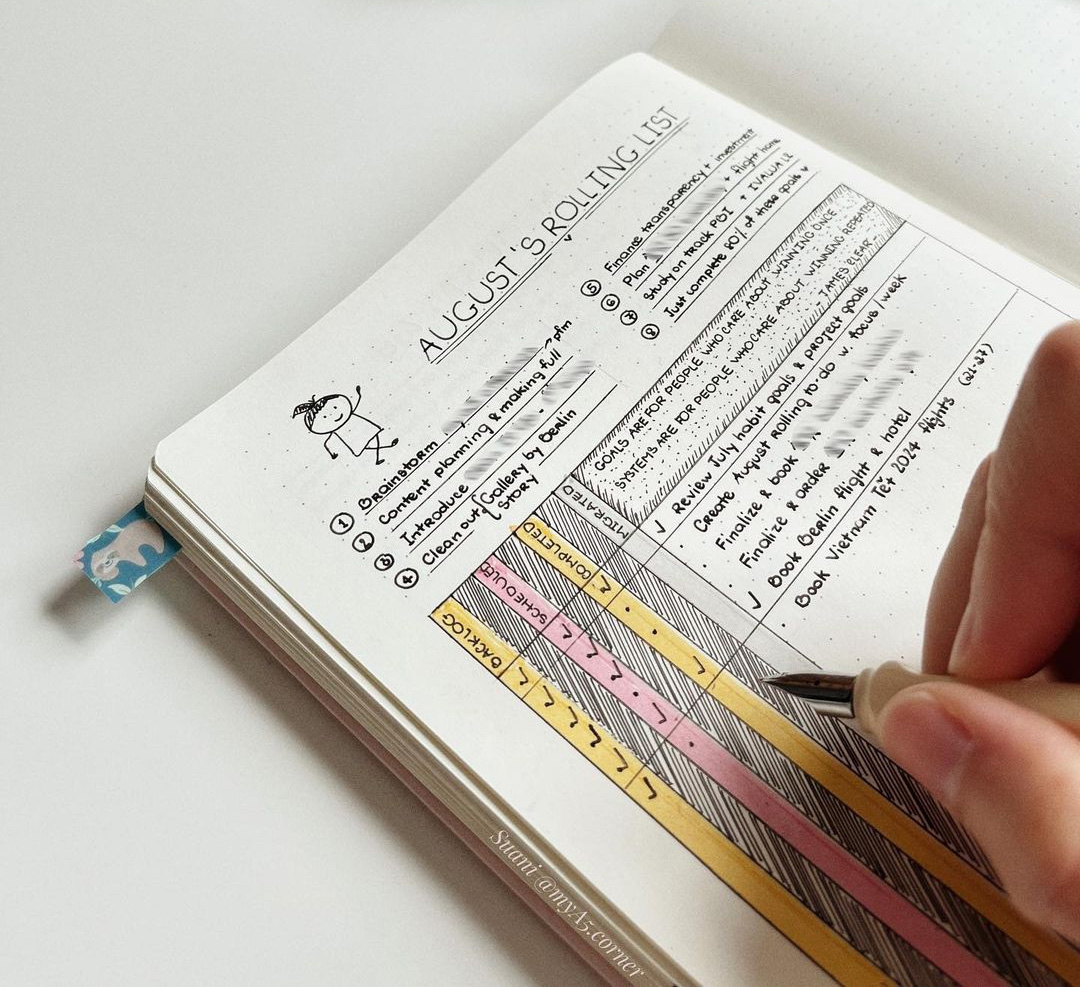 AUGUST'S ROLLING LIST
① Brainstorm
② Content planning & making full plan
③ Introduce
④ Clean out { Gallery by Berlin
Story
⑤ Finance transparency + investment
⑥ Plan + flight home
⑦ Study on track PGI +
⑧ Just complete 80% of these goals
GOALS ARE FOR PEOPLE WHO CARE ABOUT WINNING ONCE
SYSTEMS ARE FOR PEOPLE WHO CARE ABOUT WINNING REPEATED
- JAMES CLEAR -
BACKLOG
SCHEDULED
COMPLETED
MIGRATED
Review July habit goals & project goals
Create August Rolling to-do w. focus/week
Finalize & book
Finalize & order
Book Berlin flight & hotel
Book Vietnam Tết 2024 flights (21-27)
Suani @myA5.corner